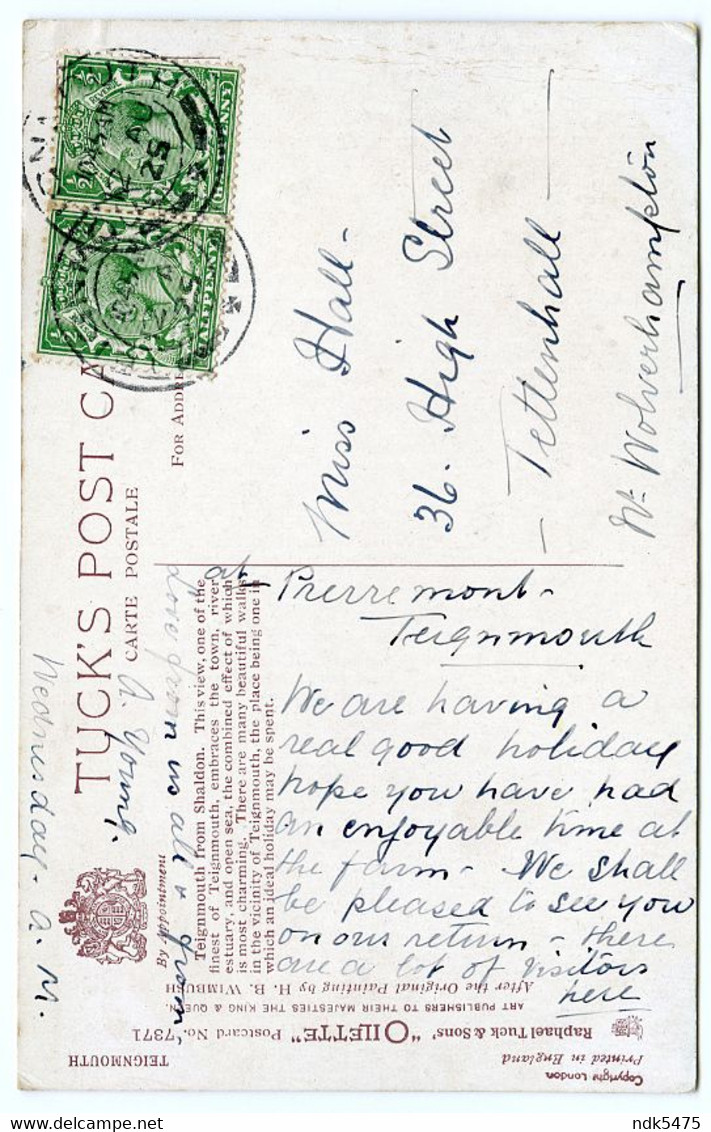 TUCK'S POST CA
CARTE POSTALE
FOR ADDRE
By Appointment
Teignmouth from Shaldon. This view, one of the
finest of Teignmouth, embraces the town, river
estuary, and open sea, the combined effect of which
is most charming. There are many beautiful walks
in the vicinity of Teignmouth, the place being one in
which an ideal holiday may be spent.
Wednesday. a.m.
at Pierremont-
Teignmouth
We are having a
real good holiday
hope you have had
an enjoyable time at
the farm - We shall
be pleased to see you
on our return - there
are a lot of visitors
here
Love from us all & from
A. Young.
Miss Hall-
36. High Street
- Tettenhall -
Nr Wolverhampton
HALFPENNY
TEIGNMOUTH
Raphael Tuck & Sons' "OILETTE" Postcard No. 7371
ART PUBLISHERS TO THEIR MAJESTIES THE KING & QUEEN.
After the Original Painting by H. B. WIMBUSH
Printed in England
Copyright London
delcampe.net
ndk5475